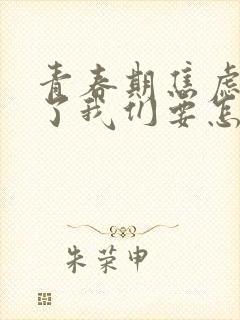 青春期焦虑
了我们要怎
朱荣申